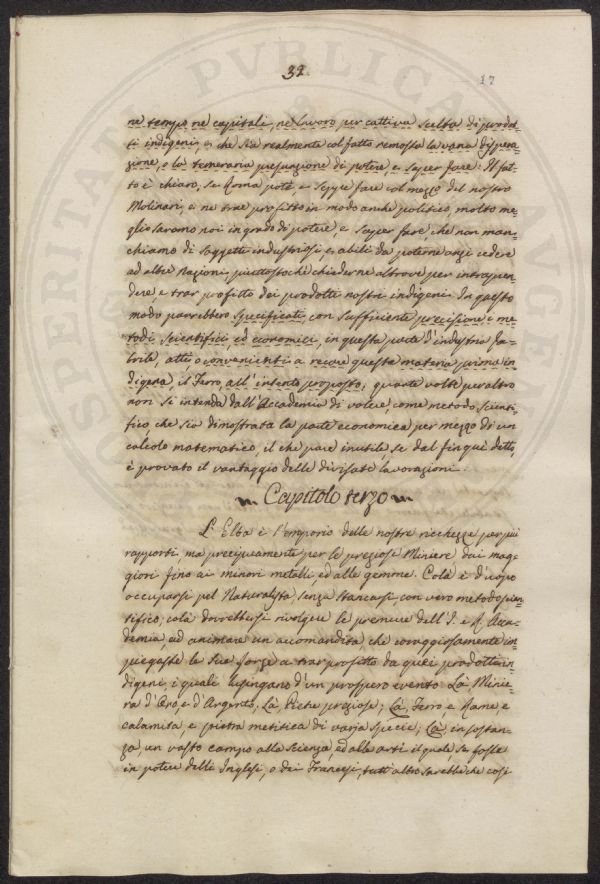 32.
17
ne tempo, ne capitali, ne lavoro per cattiva scelta di prodot-
ti indigeni, e che sia realmente col fatto remossa la vana dispera-
zione, o la temeraria presunzione di potere, e saper fare. Il fat-
to è chiaro, se Roma potè e seppe fare col mezzo del nostro
Molinari, e ne trae profitto in modo anche politico, molto me-
glio saremo noi in grado di potere, e saper fare, che non man-
chiamo di soggetti industriosi, e abili da poterne anzi cedere
ad altre Nazioni piuttostochè chiederne altrove per intrapren-
dere e trar profitto dei prodotti nostri indigeni. In questo
modo parrebbero specificati con sufficiente precisione i me-
todi scientifici ed economici, in questa parte d'industria fa-
brile, atti, o convenienti a recare questa materia prima in-
digena, il Ferro, all'intento proposto; quante volte peraltro
non si intenda dall'Accademia di volere, come metodo scienti-
fico, che sia dimostrata la parte economica per mezzo di un
calcolo matematico, il che pare inutile, se dal fin quì detto,
è provato il vantaggio delle divisate lavorazioni.
Capitolo terzo
L'Elba è l'emporio delle nostre ricchezze per più
rapporti ma precipuamente per le preziose Miniere dai mag-
giori fino ai minori metalli, ed alle gemme. Colà è d'uopo
occuparsi pel Naturalista, senza stancarsi, con vero metodo scien-
tifico; colà dovrebbersi rivolgere le premure dell'I. e R. Acca-
demia, ad animare un accomandita, che coraggiosamente im-
piegasse le sue forze a trar profitto da quei prodotti in-
digeni, i quali lusingano d'un prospero evento. Là Minie-
ra d'Oro, e d'Argento; Là Pietre preziose; Là Ferro e Rame, e
calamita, e pietra metitica di varja specie; Là in sostan-
za, un vasto campo alla Scienza, ed alle arti il quale, se fosse
in potere delli Inglesi, o dei Francesi, tutt'altro sarebbe che così